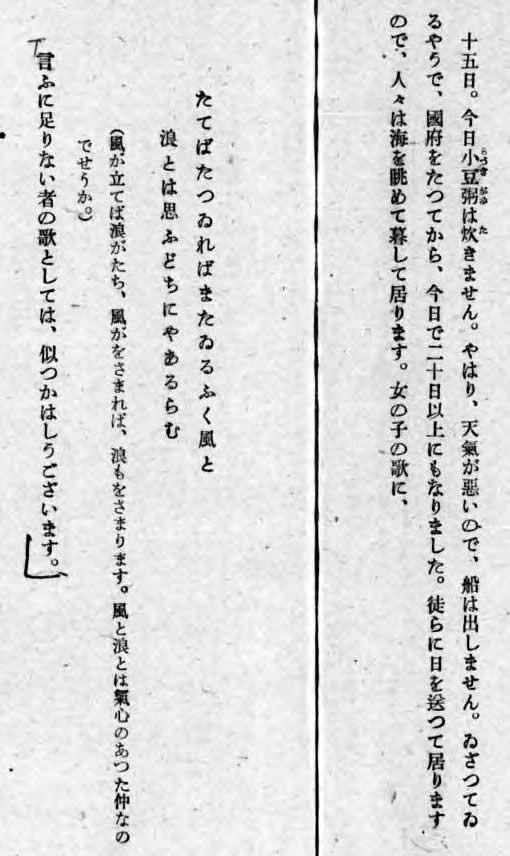 十五日。今日小豆粥は炊きません。やはり、天氣が悪いので、船は出しません。ゐざつてゐ
るやうで、國府をたつてから、今日で二十日以上にもなりました。徒らに日を送つて居ります
ので、人々は海を眺めて暮して居ります。女の子の歌に、
たてばたつゐればまたゐるふく風と
浪とは思ふどちにやあるらむ
(風が立てば浪がたち、風がをさまれば、浪もをさまります。風と浪とは氣心のあつた仲なの
でせうか。)
「言ふに足りない者の歌としては、似つかはしうございます。」